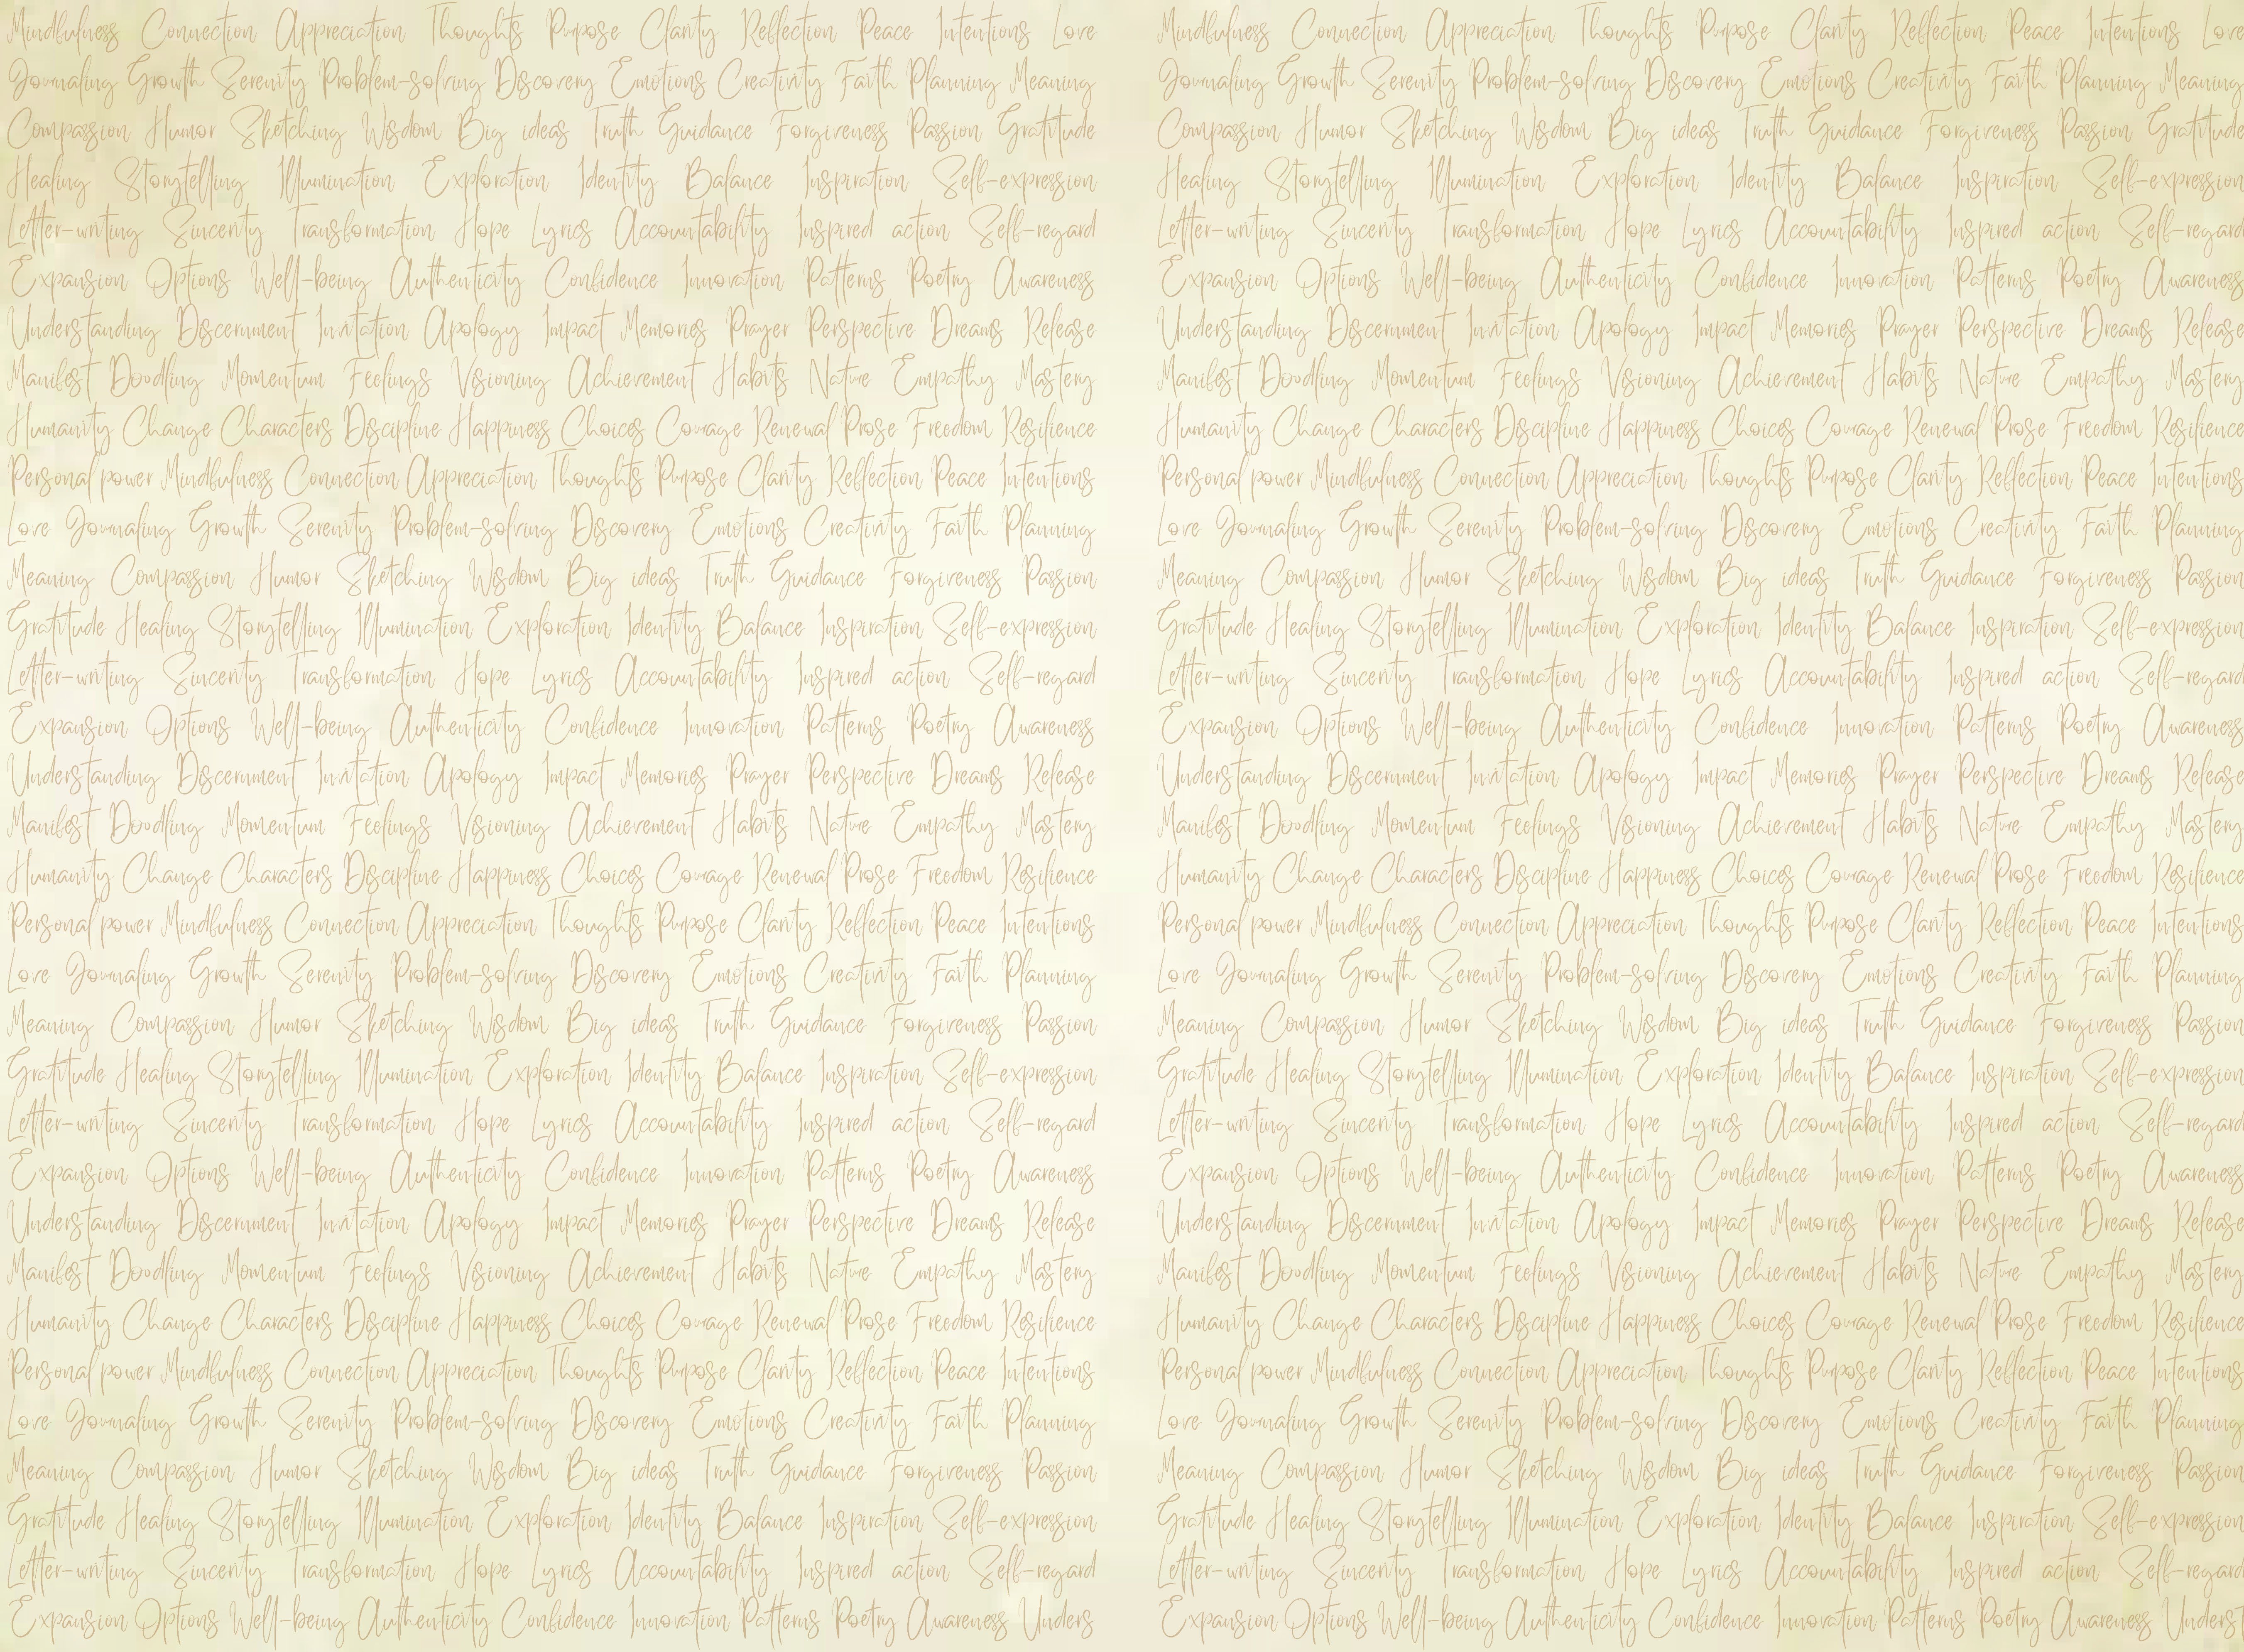 Mindfulness Connection Appreciation Thoughts Purpose Clarity Reflection Peace Intentions Love
Journaling Growth Serenity Problem-solving Discovery Emotions Creativity Faith Planning Meaning
Compassion Humor Sketching Wisdom Big ideas Truth Guidance Forgiveness Passion Gratitude
Healing Storytelling Illumination Exploration Identity Balance Inspiration Self-expression
Letter-writing Sincerity Transformation Hope Lyrics Accountability Inspired action Self-regard
Expansion Options Well-being Authenticity Confidence Innovation Patterns Poetry Awareness
Understanding Discernment Invitation Apology Impact Memories Prayer Perspective Dreams Release
Manifest Doodling Momentum Feelings Visioning Achievement Habits Nature Empathy Mastery
Humanity Change Characters Discipline Happiness Choices Courage Renewal Prose Freedom Resilience
Personal power Mindfulness Connection Appreciation Thoughts Purpose Clarity Reflection Peace Intentions
Love Journaling Growth Serenity Problem-solving Discovery Emotions Creativity Faith Planning
Meaning Compassion Humor Sketching Wisdom Big ideas Truth Guidance Forgiveness Passion
Gratitude Healing Storytelling Illumination Exploration Identity Balance Inspiration Self-expression
Letter-writing Sincerity Transformation Hope Lyrics Accountability Inspired action Self-regard
Expansion Options Well-being Authenticity Confidence Innovation Patterns Poetry Awareness
Understanding Discernment Invitation Apology Impact Memories Prayer Perspective Dreams Release
Manifest Doodling Momentum Feelings Visioning Achievement Habits Nature Empathy Mastery
Humanity Change Characters Discipline Happiness Choices Courage Renewal Prose Freedom Resilience
Personal power Mindfulness Connection Appreciation Thoughts Purpose Clarity Reflection Peace Intentions
Love Journaling Growth Serenity Problem-solving Discovery Emotions Creativity Faith Planning
Meaning Compassion Humor Sketching Wisdom Big ideas Truth Guidance Forgiveness Passion
Gratitude Healing Storytelling Illumination Exploration Identity Balance Inspiration Self-expression
Letter-writing Sincerity Transformation Hope Lyrics Accountability Inspired action Self-regard
Expansion Options Well-being Authenticity Confidence Innovation Patterns Poetry Awareness
Understanding Discernment Invitation Apology Impact Memories Prayer Perspective Dreams Release
Manifest Doodling Momentum Feelings Visioning Achievement Habits Nature Empathy Mastery
Humanity Change Characters Discipline Happiness Choices Courage Renewal Prose Freedom Resilience
Personal power Mindfulness Connection Appreciation Thoughts Purpose Clarity Reflection Peace Intentions
Love Journaling Growth Serenity Problem-solving Discovery Emotions Creativity Faith Planning
Meaning Compassion Humor Sketching Wisdom Big ideas Truth Guidance Forgiveness Passion
Gratitude Healing Storytelling Illumination Exploration Identity Balance Inspiration Self-expression
Letter-writing Sincerity Transformation Hope Lyrics Accountability Inspired action Self-regard
Expansion Options Well-being Authenticity Confidence Innovation Patterns Poetry Awareness Unders
Mindfulness Connection Appreciation Thoughts Purpose Clarity Reflection Peace Intentions Love
Journaling Growth Serenity Problem-solving Discovery Emotions Creativity Faith Planning Meaning
Compassion Humor Sketching Wisdom Big ideas Truth Guidance Forgiveness Passion Gratitude
Healing Storytelling Illumination Exploration Identity Balance Inspiration Self-expression
Letter-writing Sincerity Transformation Hope Lyrics Accountability Inspired action Self-regard
Expansion Options Well-being Authenticity Confidence Innovation Patterns Poetry Awareness
Understanding Discernment Invitation Apology Impact Memories Prayer Perspective Dreams Release
Manifest Doodling Momentum Feelings Visioning Achievement Habits Nature Empathy Mastery
Humanity Change Characters Discipline Happiness Choices Courage Renewal Prose Freedom Resilience
Personal power Mindfulness Connection Appreciation Thoughts Purpose Clarity Reflection Peace Intentions
Love Journaling Growth Serenity Problem-solving Discovery Emotions Creativity Faith Planning
Meaning Compassion Humor Sketching Wisdom Big ideas Truth Guidance Forgiveness Passion
Gratitude Healing Storytelling Illumination Exploration Identity Balance Inspiration Self-expression
Letter-writing Sincerity Transformation Hope Lyrics Accountability Inspired action Self-regard
Expansion Options Well-being Authenticity Confidence Innovation Patterns Poetry Awareness
Understanding Discernment Invitation Apology Impact Memories Prayer Perspective Dreams Release
Manifest Doodling Momentum Feelings Visioning Achievement Habits Nature Empathy Mastery
Humanity Change Characters Discipline Happiness Choices Courage Renewal Prose Freedom Resilience
Personal power Mindfulness Connection Appreciation Thoughts Purpose Clarity Reflection Peace Intentions
Love Journaling Growth Serenity Problem-solving Discovery Emotions Creativity Faith Planning
Meaning Compassion Humor Sketching Wisdom Big ideas Truth Guidance Forgiveness Passion
Gratitude Healing Storytelling Illumination Exploration Identity Balance Inspiration Self-expression
Letter-writing Sincerity Transformation Hope Lyrics Accountability Inspired action Self-regard
Expansion Options Well-being Authenticity Confidence Innovation Patterns Poetry Awareness
Understanding Discernment Invitation Apology Impact Memories Prayer Perspective Dreams Release
Manifest Doodling Momentum Feelings Visioning Achievement Habits Nature Empathy Mastery
Humanity Change Characters Discipline Happiness Choices Courage Renewal Prose Freedom Resilience
Personal power Mindfulness Connection Appreciation Thoughts Purpose Clarity Reflection Peace Intentions
Love Journaling Growth Serenity Problem-solving Discovery Emotions Creativity Faith Planning
Meaning Compassion Humor Sketching Wisdom Big ideas Truth Guidance Forgiveness Passion
Gratitude Healing Storytelling Illumination Exploration Identity Balance Inspiration Self-expression
Letter-writing Sincerity Transformation Hope Lyrics Accountability Inspired action Self-regard
Expansion Options Well-being Authenticity Confidence Innovation Patterns Poetry Awareness Underst